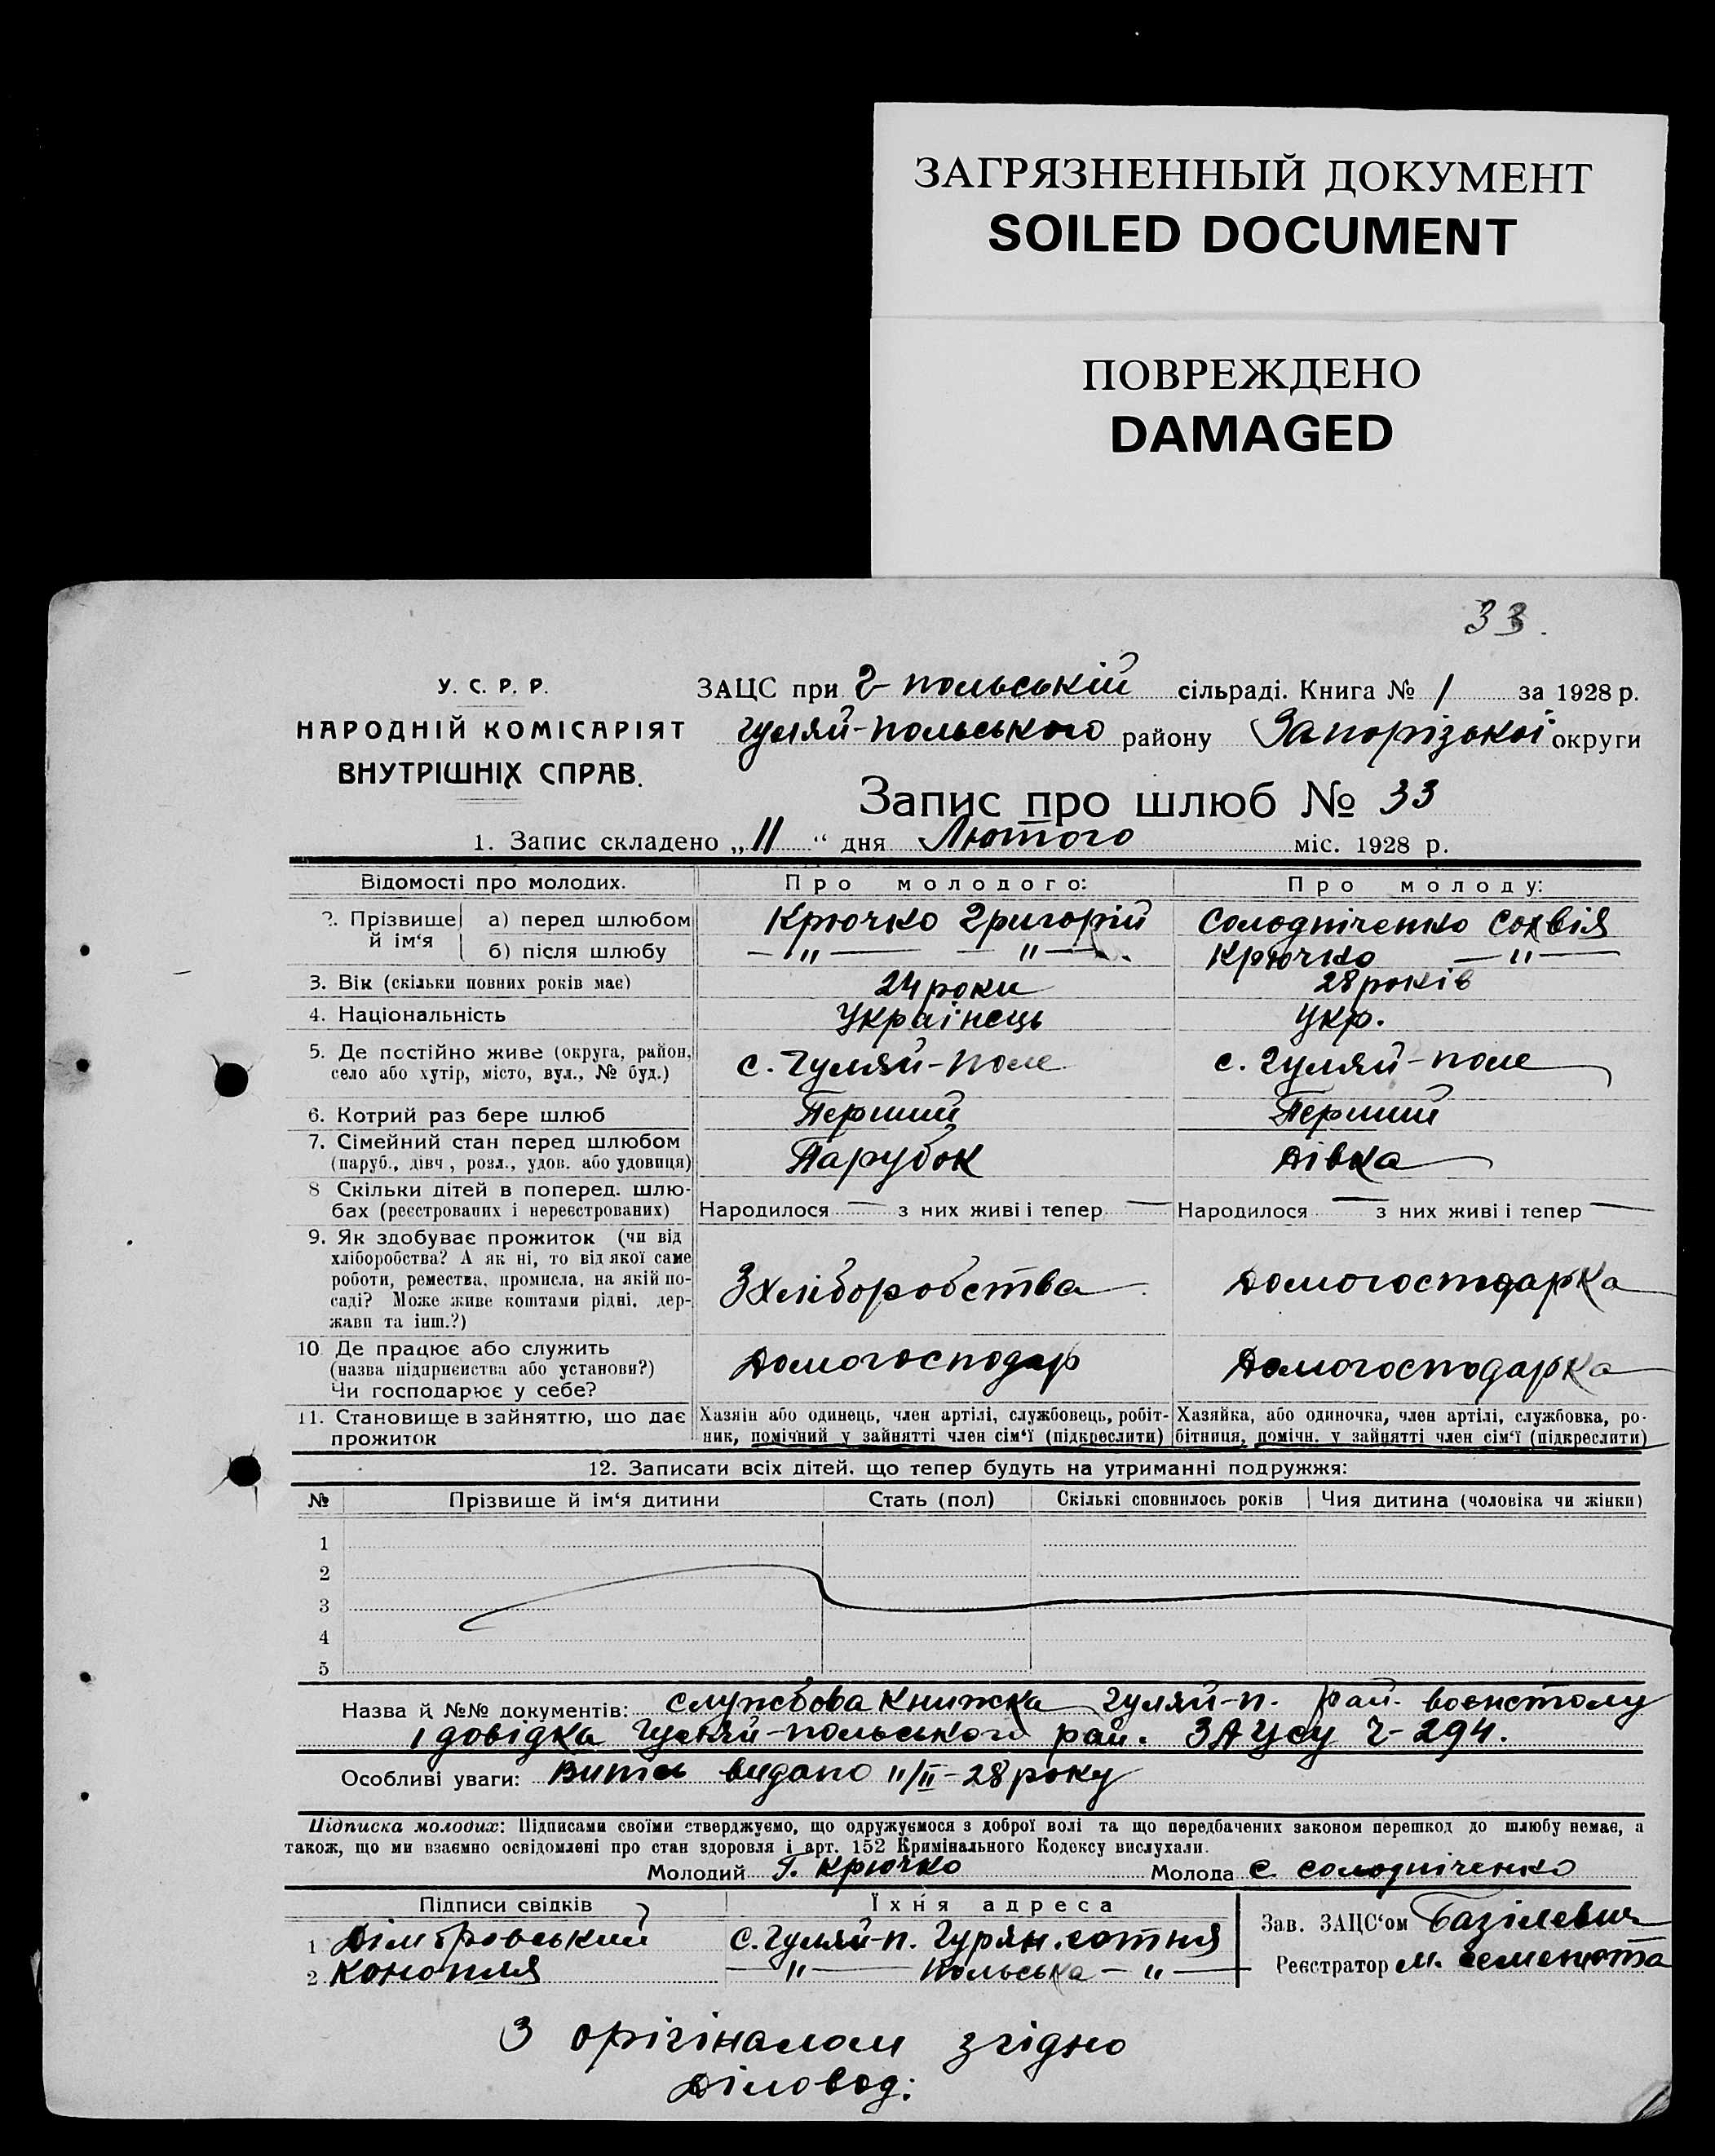 ЗАГРЯЗНЕННЫЙ ДОКУМЕНТ
SOILED DOCUMENT
ПОВРЕЖДЕНО
DAMAGED
33.
У. С. Р. Р.
НАРОДНІЙ КОМІСАРІЯТ
ВНУТРІШНІХ СПРАВ.
ЗАЦС при Г-польській сільраді. Книга № 1 за 1928 р.
Гуляй-польського району Запорізької округи
Запис про шлюб № 33
1. Запис складено „11“ дня Лютого міс. 1928 р.
Відомості про молодих. Про молодого: Про молоду:
2. Прізвище й ім‘я а) перед шлюбом Крючко Григорій Солодпіченко Софвія
б) після шлюбу — „ — — „ — Крючко — „ —
3. Вік (скільки повних років має) 24 роки 28 років
4. Національність Українець Укр.
5. Де постійно живе (округа, район, с. Гуляй-поле с. Гуляй-поле
село або хутір, місто, вул., № буд.)
6. Котрий раз бере шлюб Перший Перший
7. Сімейний стан перед шлюбом Парубок Дівка
(паруб., дівч., розл., удов. або удовиця)
8 Скільки дітей в поперед. шлю-
бах (реєстрованих і нереєстрованих) Народилося — з них живі і тепер — Народилося — з них живі і тепер —
9. Як здобуває прожиток (чи від
хліборобства? А як ні, то від якої саме
роботи, ремества, промисла, на якій по- З хліборобства Домогосподарка
саді? Може живе коштами рідні, дер-
жави та інш.?)
10. Де працює або служить Домогосподар Домогосподарка
(назва підприєиства або установи?)
Чи господарює у себе?
11. Становище в зайняттю, що дає Хазяін або одинець, член артілі, службовець, робіт- Хазяйка, або одиночка, член артілі, службовка, ро-
прожиток ник, помічний у зайнятті член сім‘ї (підкреслити) бітниця, помічн. у зайнятті член сім‘ї (підкреслити)
12. Записати всіх дітей, що тепер будуть на утриманні подружжя:
№ Прізвище й ім‘я дитини Стать (пол) Скількі сповнилось років Чия дитина (чоловіка чи жінки)
1
2
3
4
5
Назва й №№ документів: службова книжка Гуляй-п. рай. воєнстолу
і довідка Гуляй-польського рай. ЗАЦСу Ч-294.
Особливі уваги: Витяг видано 11/II-28 року
Підписка молодих: Підписами своїми стверджуємо, що одружуємося з доброї волі та що передбачених законом перешкод до шлюбу немає, а
також, що ми взаємно освідомлені про стан здоровля і арт. 152 Кримінального Кодексу вислухали.
Молодий Г. Крючко Молода С. Солодпіченко
Підписи свідків Їхня адреса
1 Дімбровський С. Гуляй-п. Гурян. сотня
2 Конопля — „ — Польська — „ —
Зав. ЗАЦС‘ом Базілевич
Реєстратор М. Семенюта
З орігіналом згідно
Діловод: